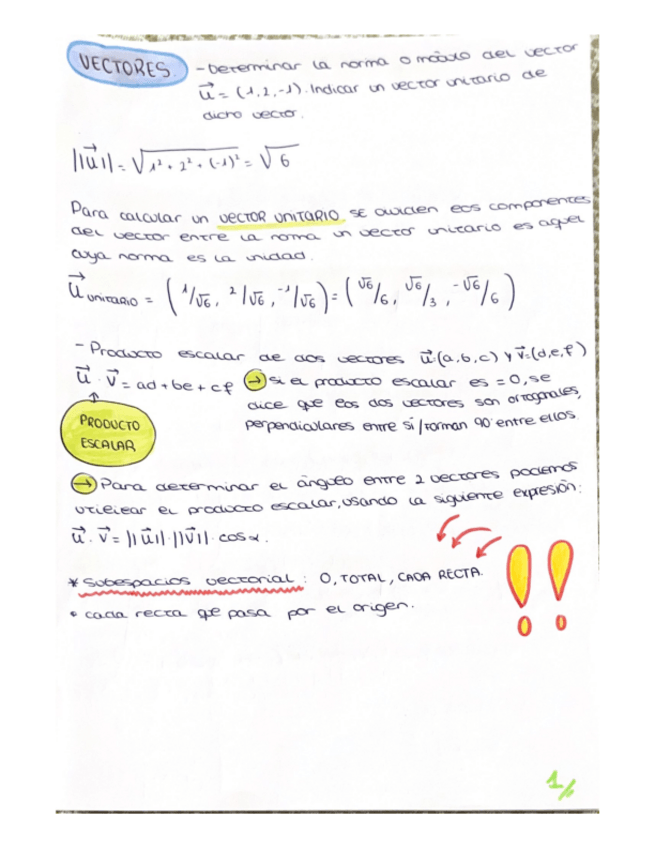 VECTORES
- Determinar la norma o módulo del vector
u⃗ = (1, 2, -1). Indicar un vector unitario de
dicho vector.
||u⃗|| = √(1² + 2² + (-1)²) = √6
Para calcular un VECTOR UNITARIO se dividen los componentes
del vector entre la norma un vector unitario es aquel
cuya norma es la unidad.
u⃗ unitario = (1/√6, 2/√6, -1/√6) = (√6/6, √6/3, -√6/6)
- Producto escalar de dos vectores u⃗·(a,b,c) y v⃗=(d,e,f)
u⃗ · v⃗ = ad + be + cf
→ si el producto escalar es = 0, se
dice que los dos vectores son ortogonales,
perpendiculares entre sí/forman 90° entre ellos.
↑
PRODUCTO
ESCALAR
→ Para determinar el ángulo entre 2 vectores podemos
utilizar el producto escalar, usando la siguiente expresión:
u⃗ · v⃗ = ||u⃗||·||v⃗||· cos α.
* Subespacios vectorial : O, TOTAL, CADA RECTA.
• cada recta que pasa por el origen.
!!
1/